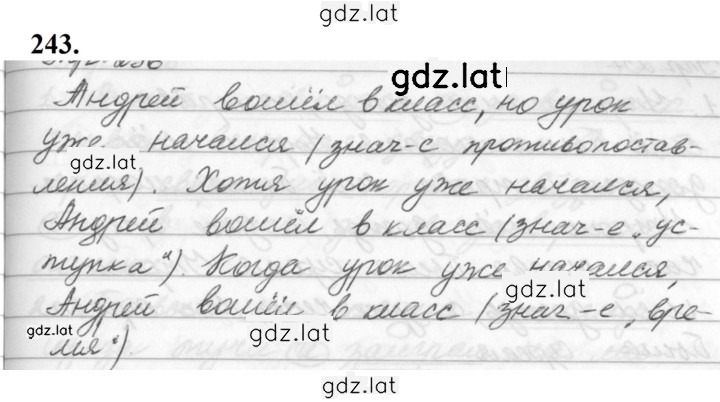 gdz.lat
243.
gdz.lat
Андрей вошёл в класс, но урок
уже начался (знач-е противопостав-
gdz.lat
ления). Хотя урок уже начался,
Андрей вошёл в класс (знач-е „ус-
тупка"). Когда урок уже начался,
gdz.lat
Андрей вошёл в класс (знач-е „вре-
gdz.lat
gdz.lat
мя").
gdz.lat